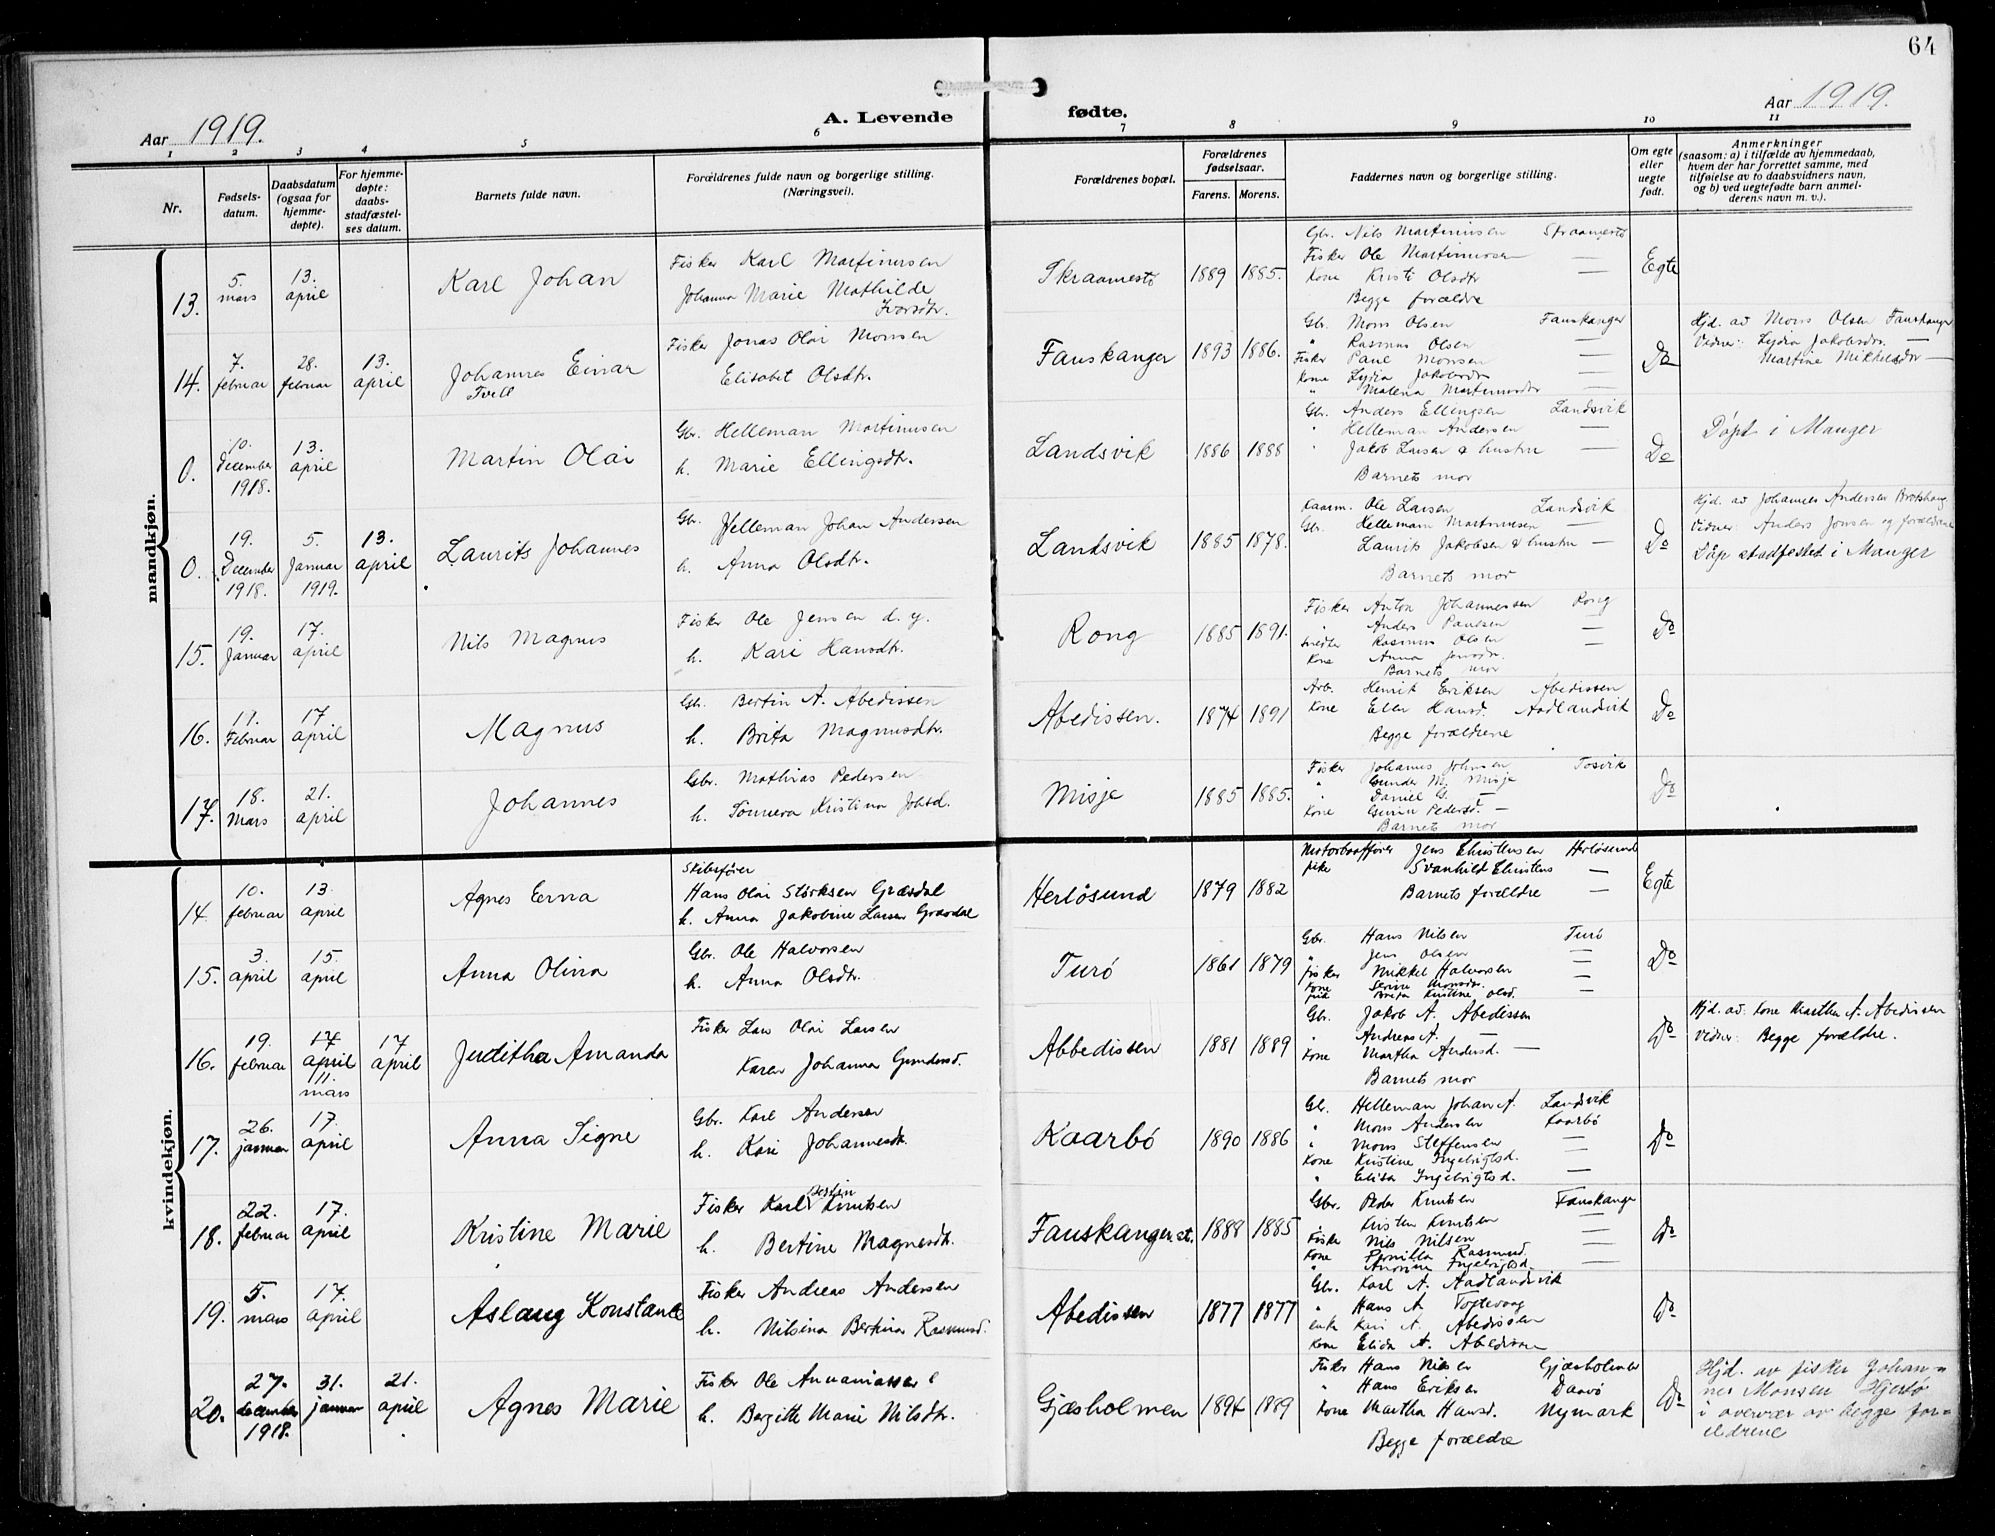 64
Aar 1919.
A. Levende fødte.
Aar 1919.
1 2 3 4 5 6 7 8 9 10 11
Nr.
Fødsels-
datum.
Daabsdatum
(ogsaa for
hjemme-
døpte).
For hjemme-
døpte:
daabs-
stadfæstel-
ses datum.
Barnets fulde navn.
Forældrenes fulde navn og borgerlige stilling.
(Næringsvei).
Forældrenes bopæl.
Forældrenes
fødselsaar.
Farens. Morens.
Faddernes navn og borgerlige stilling.
Om egte
eller
uegte
født.
Anmerkninger
(saasom: a) i tilfælde av hjemmedaab,
hvem der har forrettet samme, med
tilføielse av to daabsvidners navn,
og b) ved uegtefødte barn anmel-
derens navn m. v.).
mandkjøn.
13. 5. mars 13. april Karl Johan
Fisker Karl Martinusen
Johanna Marie Mathilde
Ivarsdtr.
Skraamestø 1889 1885.
Gbr. Nils Martinusen Skraamestø
Fisker Ole Martinusen —
Kone Kristi Olsdtr —
Begge forældre
Egte
14. 7. februar 28. februar 13. april Johannes Einar
Tvill
Fisker Jonas Olai Monsen
Elisabet Olsdtr.
Fauskanger 1893 1886.
Gbr. Mons Olsen Fauskanger
" Rasmus Olsen —
Fisker Paul Monsen —
Kone Lydia Jakobsdtr —
" Malena Martinusdtr —
Do
Hjd. av Mons Olsen Fauskanger
Vidner: Lydia Jakobsdtr. —
Martine Mikkelsdtr —
0. 10. December 1918. 13. april Martin Olai
Gbr. Helleman Martinusen
h. Marie Ellingsdtr.
Landsvik 1886 1888
Gbr. Anders Ellingsen Landsvik
" Helleman Andersen —
" Jakob Larsen & hustru —
Barnets mor
Do
Døpt i Manger
0. 19. December 1918. 5. Januar 1919. 13. april Laurits Johannes
Gbr. Helleman Johan Andersen
h. Anna Olsdtr.
Landsvik 1885 1878.
Kaarm. Ole Larsen Landsvik
Gbr. Hellemann Martinusen —
Laurits Jakobsen & hustru —
Barnets mor
Do
Hjd. av Johannes Andersen
Vidner: Anders Jonsen og forældrene
Dåp stadfested i Manger
15. 19. Januar 17. april Nils Magnus
Fisker Ole Jensen d. y.
h. Kari Hansdtr.
Rong 1885 1891.
Fisker Anton Johannessen Rong
" Anders Paulsen —
Rasmus Olsen —
Kone Anna Jensdtr.
Barnets mor
Do
16. 11. Februar 17 april Magnus
Gbr. Bertin A. Abedissen
h. Brita Magnusdtr.
Abedissen. 1874 1891
Arb. Henrik Eriksen Abedissen
Kone Ellen Hansd. Aadlandsvik
Begge forældrene
Do
17. 18. Mars 21. april Johannes
Gbr. Mathias Pedersen
h. Sønneva Kristina Johsd.
Misje 1885 1885.
Fisker Johannes Johnsen Tosvik
" Gunder M. Misje
" Daniel G. —
Kone Pedersd. —
Barnets mor
Do
kvindekjøn.
14. 10. februar 13. april Agnes Erna
Skibsfører
Hans Olai Størksen Græsdal
h. Anna Jakobine Larsen Græsdal
Herløsund 1879 1882
Motorbaatfører Jens Christensen Herløsund
pike Svanhild Christens —
Barnets forældre —
Egte
15. 3. april 15. april Anna Olina
Gbr. Ole Halvorsen
h. Anna Olsdtr.
Turø 1861 1879
Gbr. Hans Nilsen Turø
" Jens Olsen —
Fisker Mikkel Halvorsen —
Kone Serine Monsdtr. —
pik Brita Kristine Olsd. —
Do
16. 19. februar 17 april 11. mars 17 april Juditha Amanda
Fisker Lars Olai Larsen
Karen Johanna Gundersd.
Abbedissen 1881 1889
Gbr. Jakob A. Abedissen
" Andreas A. —
Kone Martha Andersd. —
Barnets mor
Do
Hjd. av: Kone Martha A. Abedissen
Vidner: Begge forældre.
17. 26. januar 17. april Anna Signe
Gbr. Karl Andersen
h. Kari Johannesdtr.
Kaarbø 1890 1886
Gbr. Helleman Johan A. Landsvik
" Mons Andersen Kaarbø
" Mons Steffensen —
Kone Kristine Ingebrigtsd. —
" Elisa Ingebrigtsd. —
Do
18. 22. februar 17. april Kristine Marie
Fisker Karl Bertin Knutsen
h. Bertine Magnesdtr.
Fauskanger st. 1888 1885
Gbr. Peder Knutsen Fauskanger
" Kristen Knutsen —
Fisker Nils Nilsen —
Kone Pernilla Rasmusd. —
" Andrine Ingebrigtsd. —
Do
19. 5. mars 17. april Aslaug Konstance
Fisker Andreas Andersen
h. Nilsina Bertina Rasmusd.
Abedissen 1877 1877
Gbr. Karl A. Aadlandsvik
" Hans A. Toftevaag
enke Kari A. Abedissen
Kone Elida A. Abedissen
Do
20. 27. december 1918. 31. januar 21. april Agnes Marie
Fisker Ole Annaniassen
h. Bergitte Marie Nilsdtr.
Gjæsholmen 1894 1889
Fisker Hans Nilsen Gjæsholmen
" Hans Eriksen Daavø
Kone Martha Hansd. Nymark
Begge forældre
Do
Hjd. av fisker Johan-
nes Monsen Hjertø
i overvær av begge for-
ældrene